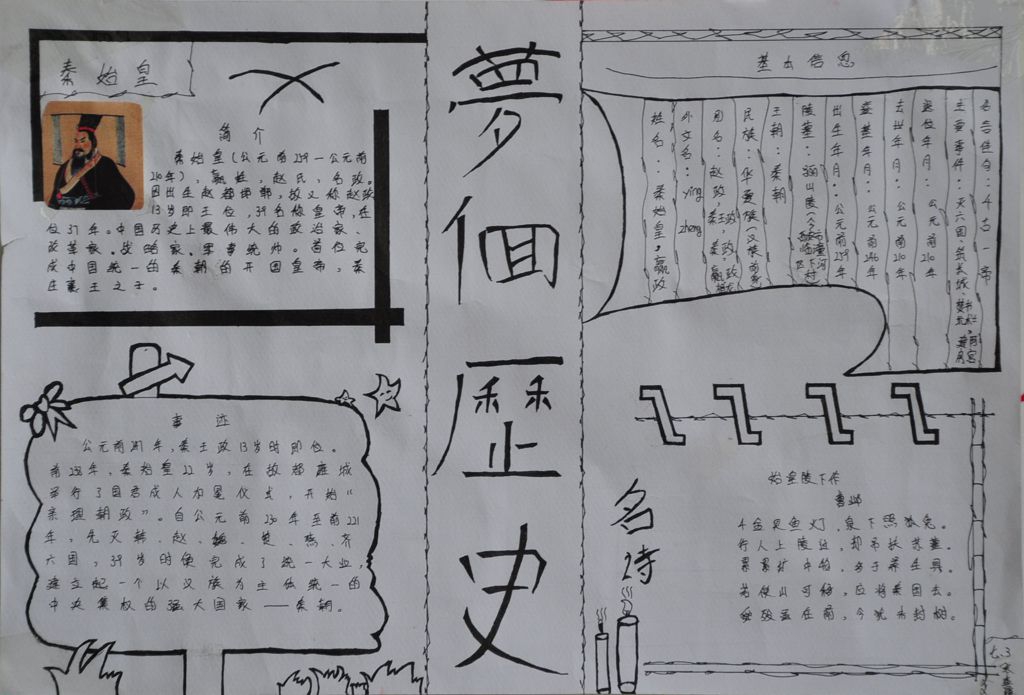 秦始皇
简介
秦始皇（公元前259—公元前
210年），嬴姓，赵氏，名政。
因出生赵都邯郸，故又称赵政
13岁即王位，39岁称皇帝，在
位37年。中国历史上最伟大的政治家、
改革家、战略家、军事统帅。首位完
成中国统一的秦朝的开国皇帝，秦
庄襄王之子。
事迹
公元前247年，秦王政13岁时即位。
前238年，秦始皇22岁，在故都雍城
举行了国君成人加冕仪式，开始“
亲理朝政”。自公元前230年至前221
年，先灭韩、赵、魏、楚、燕、齐
六国，39岁时便完成了统一大业，
建立起一个以汉族为主体统一的
中央集权的强大国家——秦朝。
夢
個
歷
史
基本信息
名言
主要事件：灭六国，筑长城，
逝位年月：公元前210年
去世年月：公元前210年
登基年月：公元前246年
出生年月：公元前259年
陵墓：骊山陵
王朝：秦朝
民族：华夏族（汉族前
国名：赵政，秦王政，秦政，
外文名：ying zheng
姓名：秦始皇，嬴政
名诗
始皇陵下作
曹邺
千金买鱼灯，泉下照狐兔。
行人上陵过，却吊扶苏墓。
累累圹中物，多于养生具。
若使山可移，应将秦国去。
舜殁虽在前，今犹未封树。
七.3